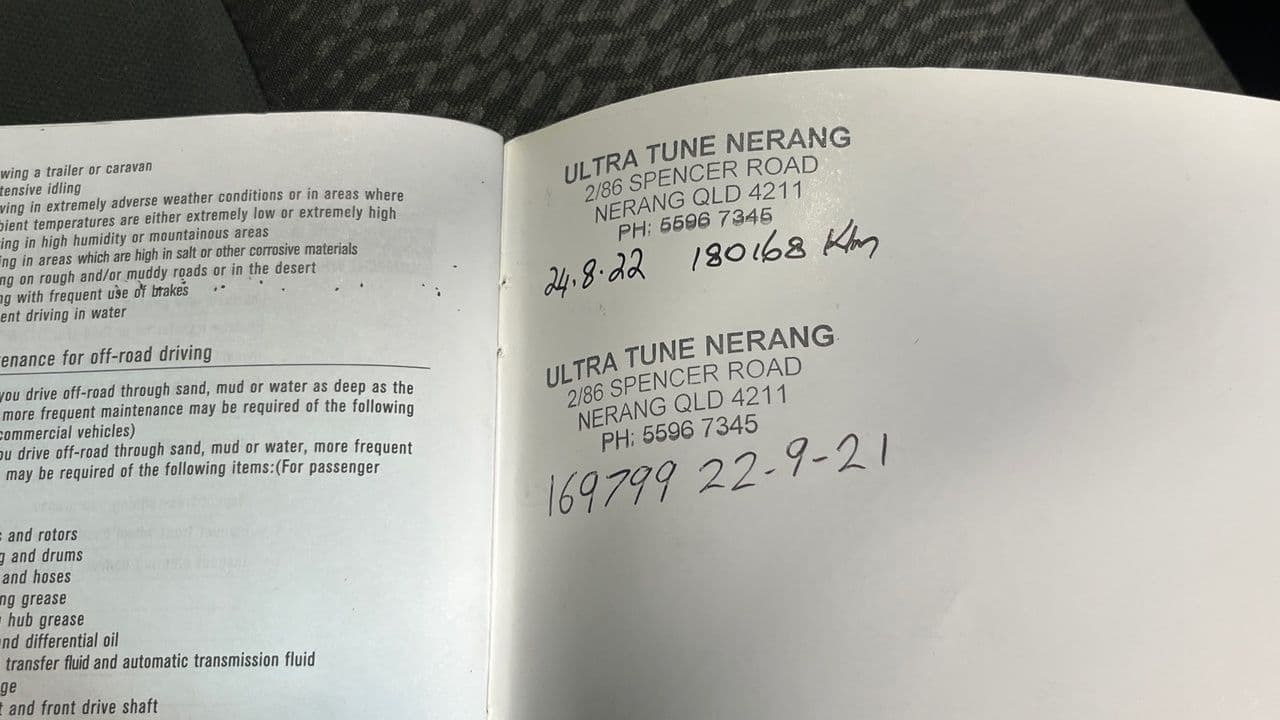 wing a trailer or caravan
tensive idling
ving in extremely adverse weather conditions or in areas where
bient temperatures are either extremely low or extremely high
ing in high humidity or mountainous areas
ing in areas which are high in salt or other corrosive materials
ng on rough and/or muddy roads or in the desert
ng with frequent use of brakes
ent driving in water
enance for off-road driving
you drive off-road through sand, mud or water as deep as the
more frequent maintenance may be required of the following
commercial vehicles)
ou drive off-road through sand, mud or water, more frequent
may be required of the following items:(For passenger
s and rotors
g and drums
and hoses
ng grease
hub grease
nd differential oil
transfer fluid and automatic transmission fluid
ge
t and front drive shaft
ULTRA TUNE NERANG
2/86 SPENCER ROAD
NERANG QLD 4211
PH: 5596 7345
24.8.22 180168 Km
ULTRA TUNE NERANG
2/86 SPENCER ROAD
NERANG QLD 4211
PH: 5596 7345
169799 22-9-21